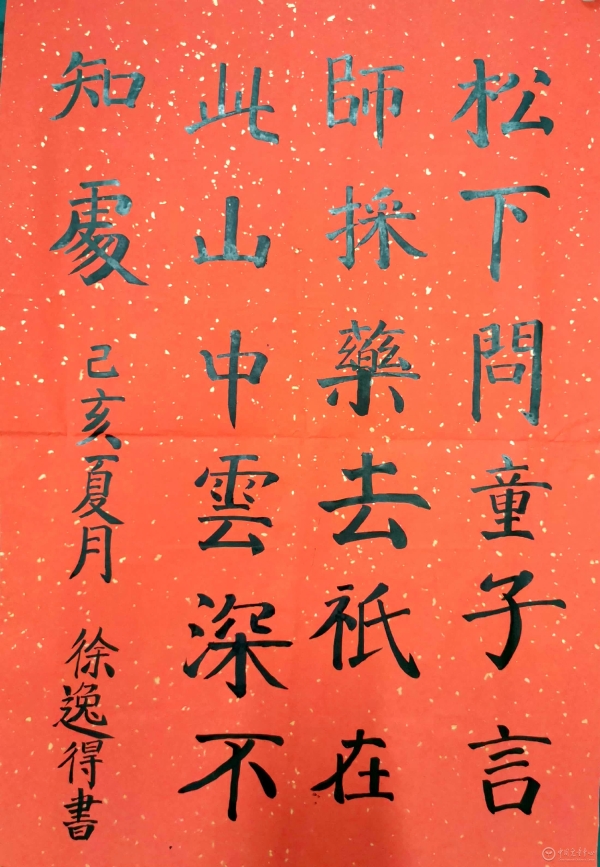 松下問童子言
師採藥去祇在
此山中雲深不
知處
己亥夏月 徐逸得書